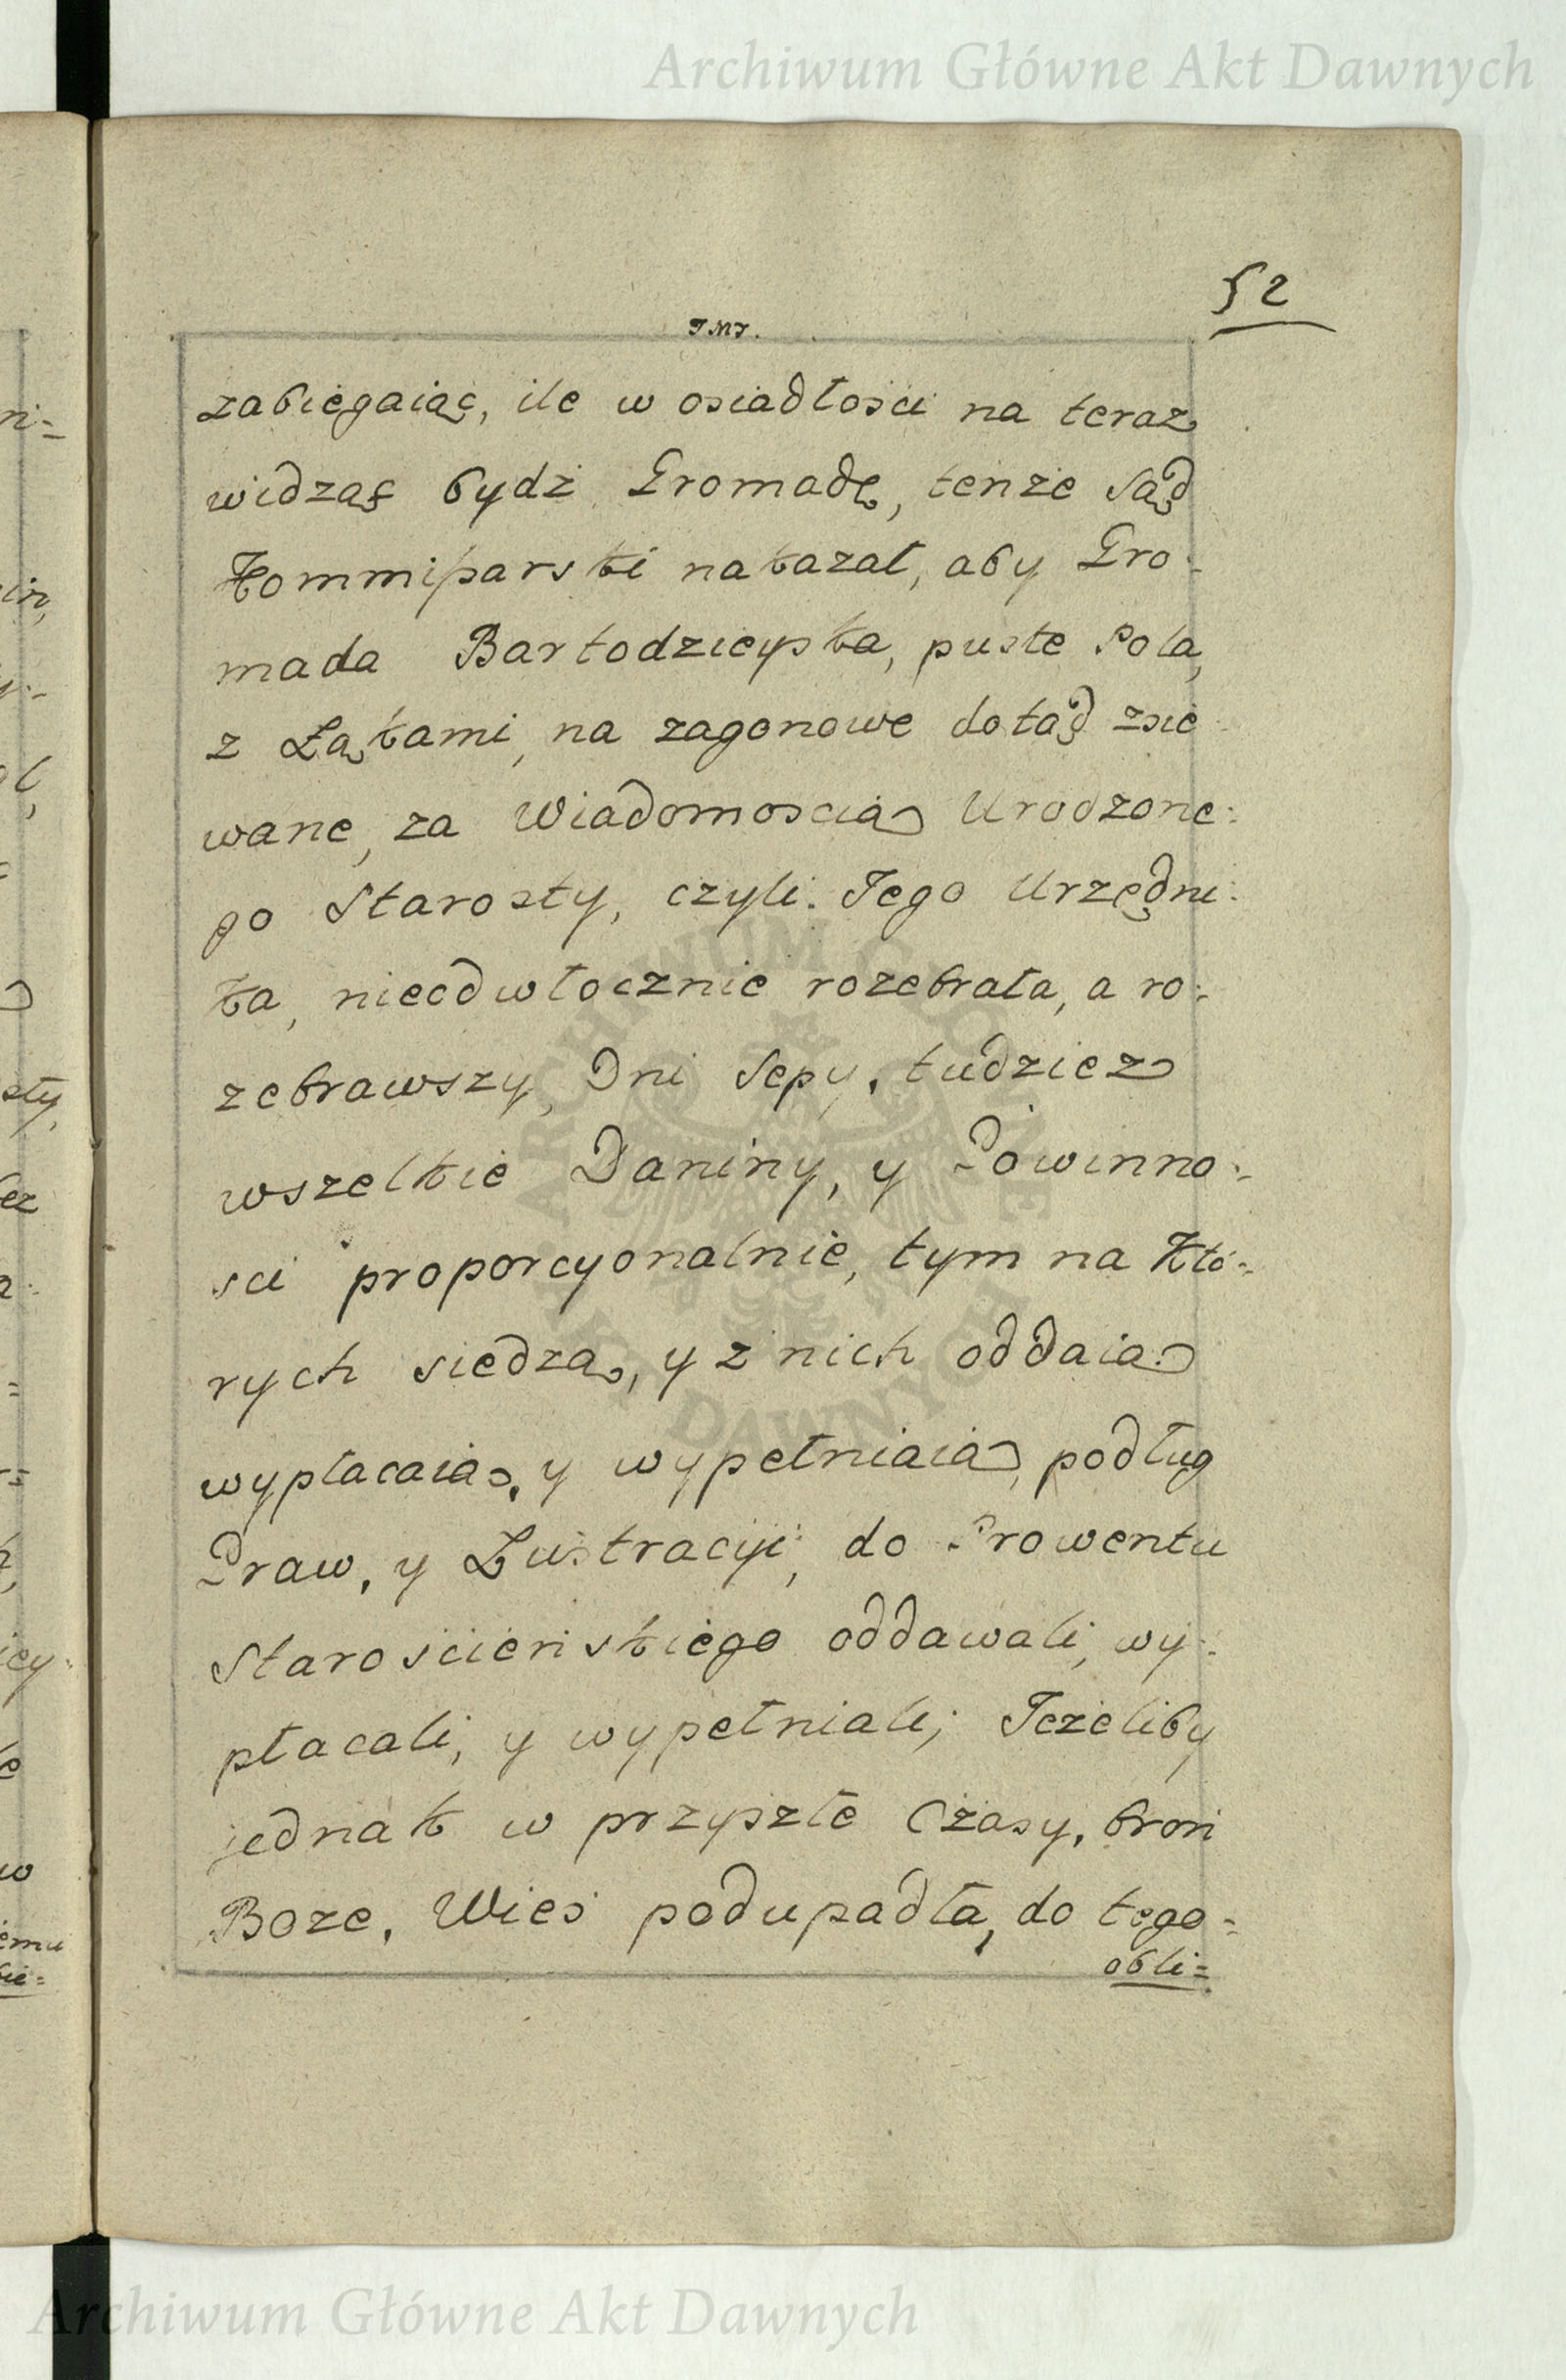 Archiwum Główne Akt Dawnych
52
J M J.
zabiegaiąc, ile w osiadłości na teraz
widząc bydź Gromadę, tenże Sąd
Kommissarski nakazał, aby Gro-
mada Bartodzieyska, puste Pola,
z Łąkami, na zagonowe dotąd zsie
wane, za Wiadomoscią Urodzone:
go Starosty, czyli Jego Urzędni:
ka, nieodwłocznie rozebrała, a ro:
zebrawszy, Dni Sepy, tudziez
wszelkie Daniny, y Powinno:
sci proporcyonalnie, tym na Któ:
rych siedzą, y z nich oddaią
wypłacaią, y wypełniaią, podług
Praw, y Lustracyi, do Prowentu
Starościńskiego oddawali, wy:
płacali, y wypełniali; Jeżeliby
jednak w przyszłe Czasy, broń
Boze, Wieś podupadła, do tego=
obli=
Archiwum Główne Akt Dawnych